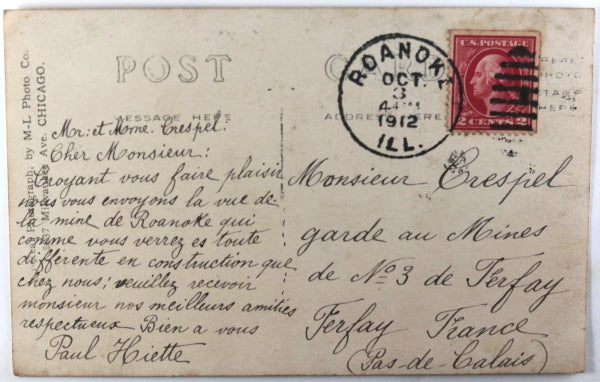 Real Photograph, by M-L Photo Co.
Ave. CHICAGO.
POST CARD
MESSAGE HERE
ADDRESS HERE
ROANOKE
OCT.
3
4 AM
1912
ILL.
U.S. POSTAGE
2 CENTS 2
REAL
PHOTO
STAMP
HERE
Mr. et Mme. Crespel.
Cher Monsieur:
Croyant vous faire plaisir
nous vous envoyons la vue de
la mine de Roanoke qui
comme vous verrez es toute
différente en construction que
chez nous; veuillez recevoir
monsieur nos meilleurs amitiés
respectueux Bien a vous
Paul Hiette
Monsieur Crespel
garde au Mines
de No 3 de Ferfay
Ferfay France
(Pas-de-Calais)